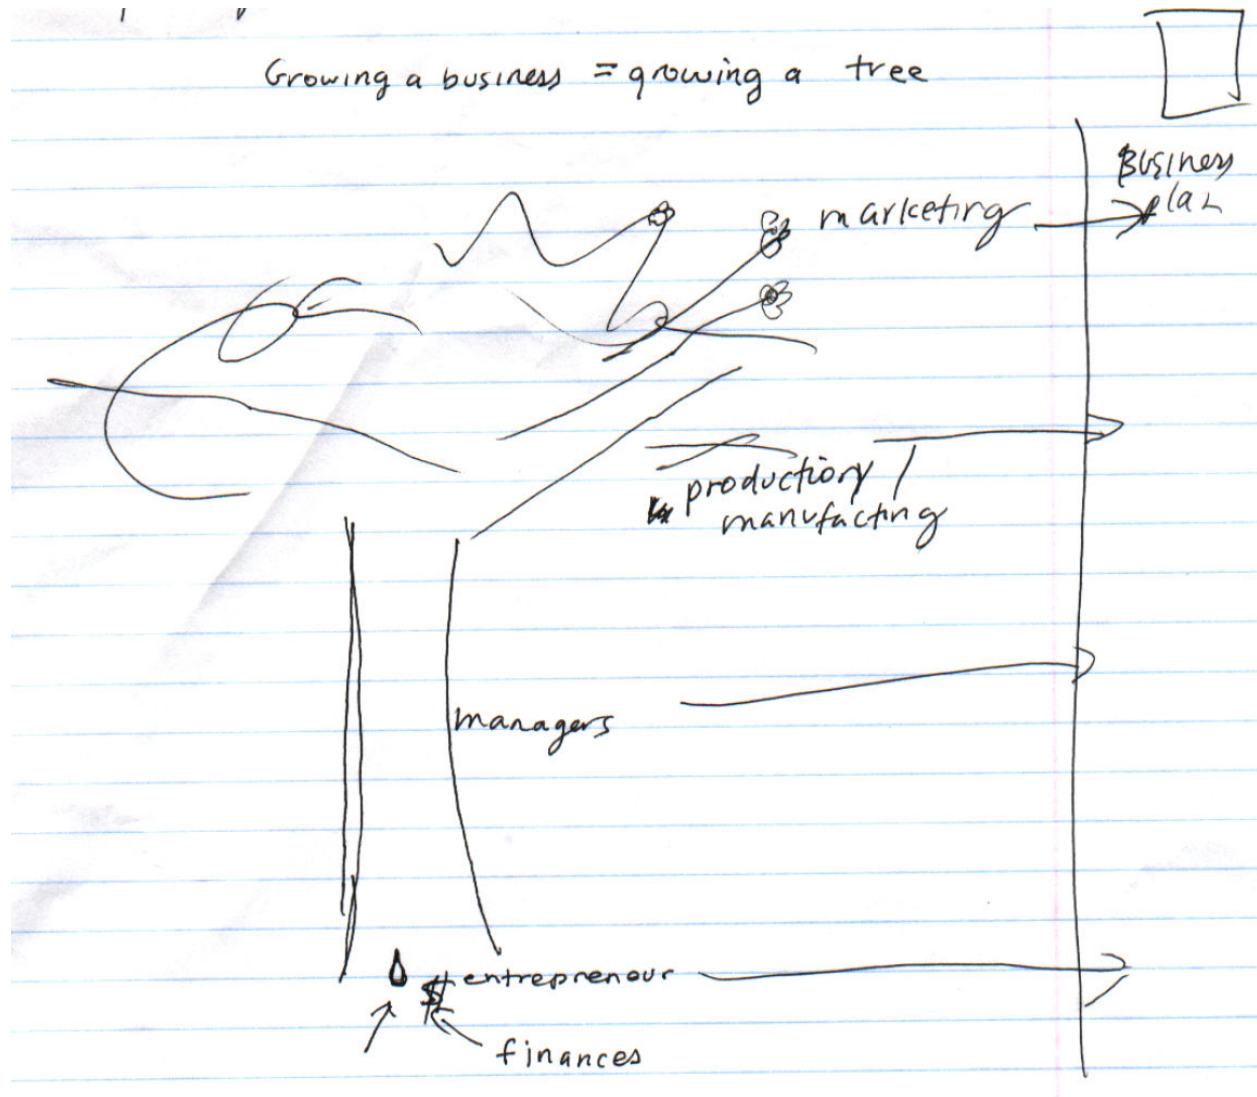 Growing a business = growing a tree
Business
plan
marketing
production/
manufacting
managers
$ entreprenour
finances